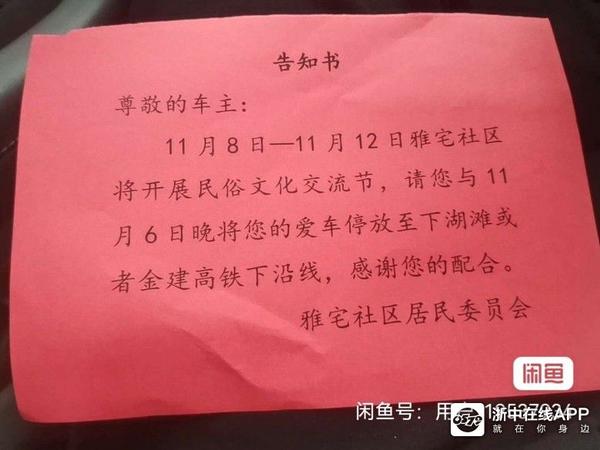 告知书
尊敬的车主：
11月8日—11月12日雅宅社区
将开展民俗文化交流节，请您与11
月6日晚将您的爱车停放至下湖滩或
者金建高铁下沿线，感谢您的配合。
雅宅社区居民委员会
闲鱼
闲鱼号：用户
浙中在线APP
就在你身边